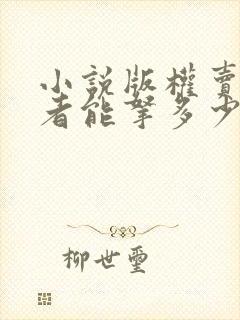 小說版權賣
者能拏多少
柳世璽